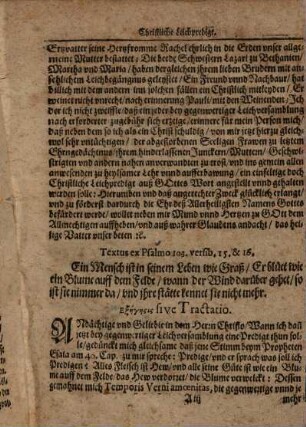 Christliche Leichpredigt.
Ertzvatter seine Hertzfromme Rachel ehrlich in die Erden unser allge-
meine Mutter bestattet: Die beede Schwestern Lazari zu Bethanien/
Martha und Maria/ haben dergleichen ihrem lieben Brudern mit an-
sehlichem Leichbegängnus geleystet; Ein Freund unnd Nachbaur/ hat
billich mit dem andern inn solchen fällen ein Christlich mitleyden/ Er
weinet nicht unrecht/ nach erinnerung Pauli/ mit den Weinenden: In
der ich nicht zweiffle/ daß eins jeder bey gegenwertiger Leichversamblung
nach erforderter zugebühr sich erzeige/ erinnere für mein Person mich
daß neben dem so ich als ein Christ schuldig/ von mir jetzt hierzu gleich
wol sehr untüchtigen/ der abgestorbenen Seeligen Frawen zu letztem
Ehrengedächtnus/ ihrem hinderlassenen Junckern/ Müttern/ Geschwi-
strigten und andern nahen anverwandten zu trost/ und ins gemein allen
anwesenden zu heylsamer Lehr unnd aufferbawung/ ein einfeltige doch
Christliche Leichpredigt auß Gottes Wort angestellt unnd gehalten
werden solle: Hierumben und das angeregter Zweck glücklich erlangt/
und zu förderst dardurch die Ehr deß Allerheiligsten Namens Gottes
befördert werde/ wollet neben mir Mund unnd Hertzen zu GOtt dem
Allmächtigen auffheben/ und auß wahrer Glaubens andacht/ das hei-
lige Vatter unser beten :c.
Textus ex Psalmo 103. versib, 15, & 16,
Ein Mensch ist in seinem Leben wie Graß/ Er blüet wie
ein Blume auff dem Felde/ wann der Wind darüber gehet/ so
ist sie nimmer da/ und jhre stätte kennet sie nicht mehr.
εξήγησις sive Tractatio.
ANdächtige und Geliebte in dem Herrn Christo/ Wann ich daß
jetzt bey gegenwertiger Leichversamblung eine Predigt thun sol-
le/ gedünckt mich gleichsamb jene Stimm beym Propheten
Esaia am 40. Cap. zu mir sprechē: Predige/ und er sprach was soll ich
Predigen: Alles Fleisch ist Hew/ und alle seine Güte ist wie ein Blu-
me auff dem Felde/ das Hew verdorret/ die Blume verwelckt: Dessen
gemahnet mich Temporis Verni amœnitas, die gegenwertige unnd je
A iij mehr